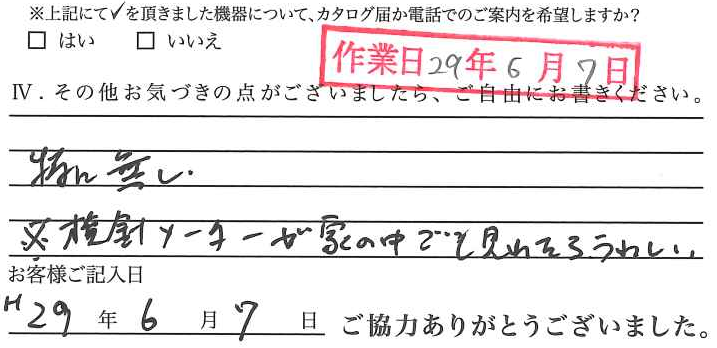 ※上記にて✓を頂きました機器について、カタログ届か電話でのご案内を希望しますか？
□ はい　□ いいえ
作業日29年6月7日
Ⅳ．その他お気づきの点がございましたら、ご自由にお書きください。
特に無し.
※ メーターが家の中でも見れたらうれしい。
お客様ご記入日
H29年6月7日 ご協力ありがとうございました。